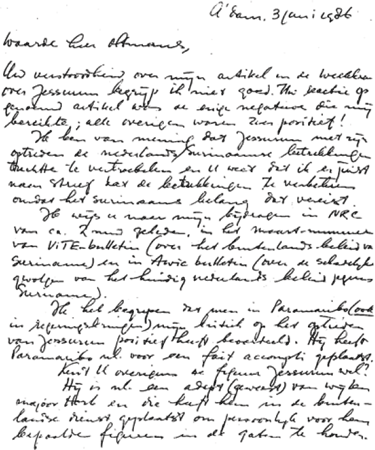 A'dam, 3 juni 1986
Waarde heer Oltmans,
Uw verstoordheid over mijn artikel in de Weekkrant
over Jessurun begrijp ik niet goed. Uw reactie op
genoemd artikel was de enige negatieve die mij
bereikte; alle overigen waren zeer positief!
Ik ben van mening dat Jessurun met zijn
optreden de nederlands/surinaamse betrekkingen
trachtte te vertroebelen en U weet dat ik er juist
naar streef dat de betrekkingen te verbeteren
omdat het surinaams belang dat vereist.
Ik wijs U naar mijn bijdragen in NRC
van ca. 2 mnd geleden, in het maart-nummer
van ViTE-bulletin (over het buitenlands-beleid van
Suriname) en in Aovic bulletin (over de schadelijke
gevolgen van het huidig nederlands beleid jegens
Suriname).
Ik heb begrepen dat men in Paramaribo (ook
in regeringskringen) mijn kritiek op het optreden
van Jessurun positief heeft beoordeeld. Hij heeft
Paramaribo nl. voor een fait accompli geplaatst.
Kent U overigens de figuur Jessurun wel?
Hij is nl. een adept (geweest) van wijlen
majoor Horb en die heeft hem in de buiten-
landse dienst geplaatst om persoonlijk voor hem
bepaalde figuren in de gaten te houden.